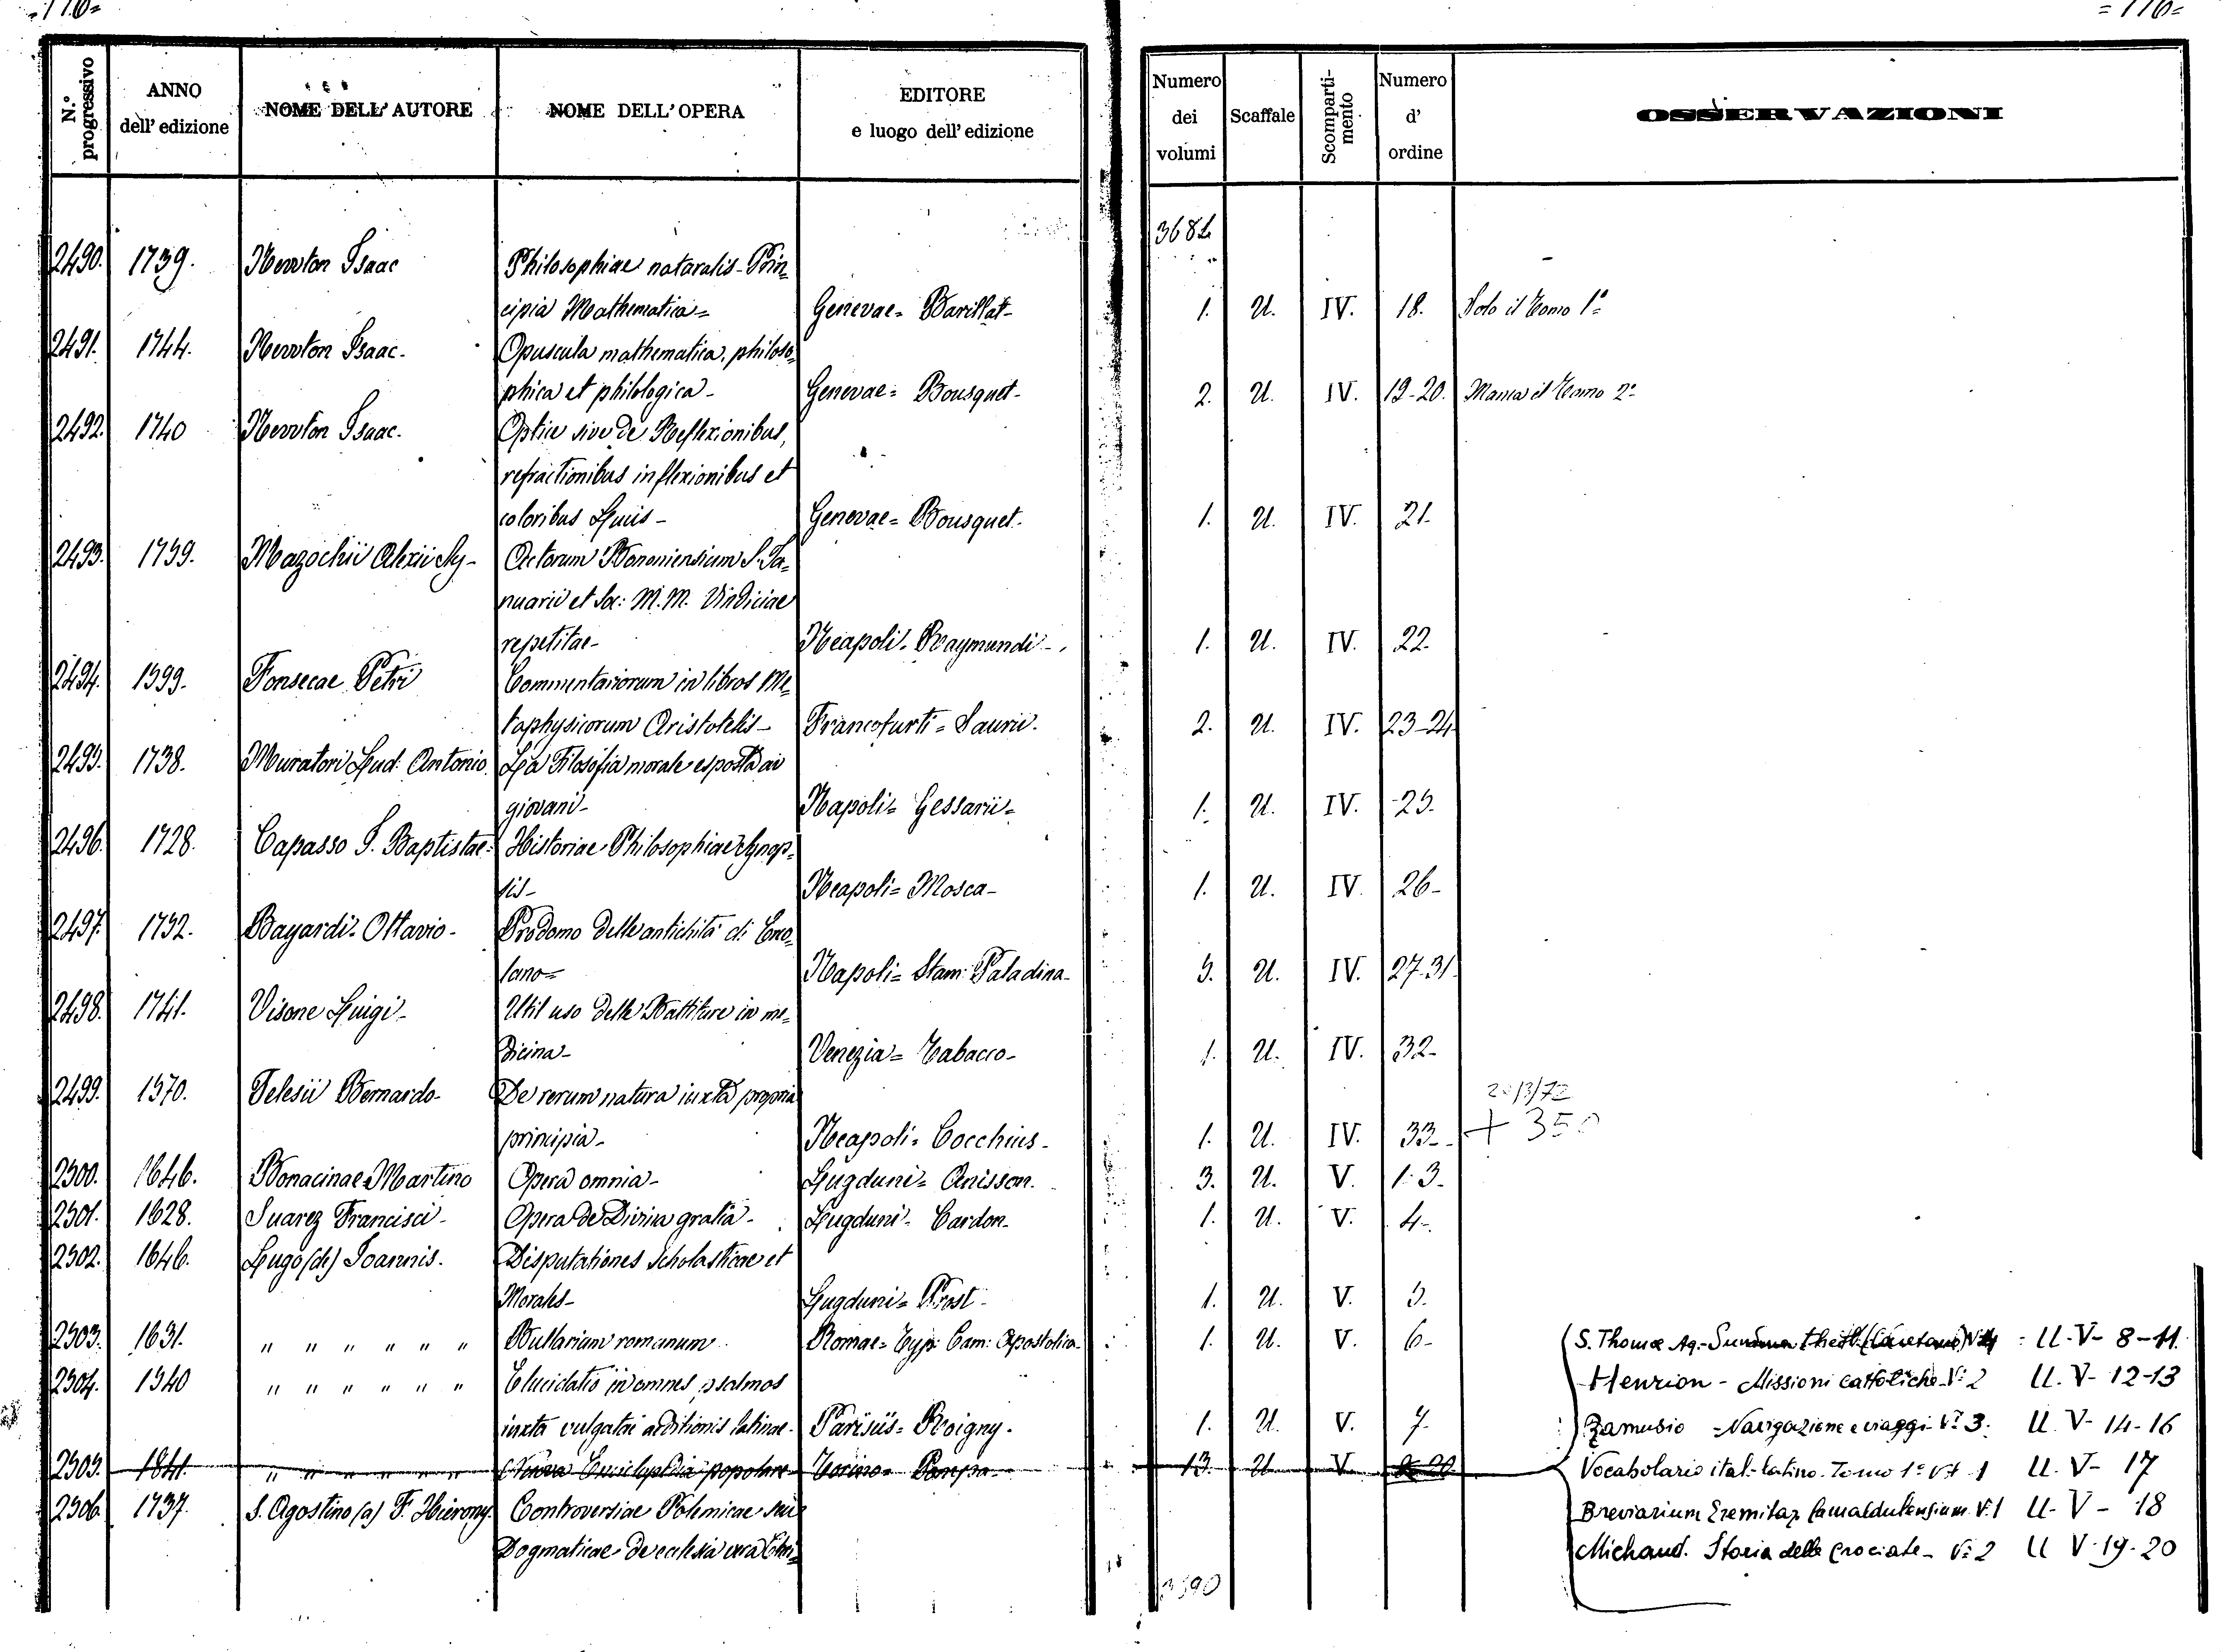 =116=
=116=
N.° progressivo
ANNO dell' edizione
NOME DELL' AUTORE
NOME DELL' OPERA
EDITORE e luogo dell' edizione
Numero dei volumi
Scaffale
Scomparti- mento
Numero d' ordine
OSSERVAZIONI
3682
2490. 1739. Newton Isaac Philosophiae naturalis - Prin=
cipia Mathematica= Genevae= Barillat- 1. U. IV. 18. Solo il Tomo 1°
2491. 1744. Newton Isaac. Opuscula mathematica, philoso=
phica et philologica- Genevae= Bousquet- 2. U. IV. 19-20. Manca il Tomo 2°
2492. 1740 Newton Isaac. Optice sive de Reflexionibus,
refractionibus inflexionibus et
coloribus Lucis- Genevae= Bousquet. 1. U. IV. 21.
2493. 1759. Mazochii Alexii Sy- Actorum Bononiensium S. Ja=
nuarii et Soc: M. M. Vindiciae
repetitae- Neapoli= Raymundi- 1. U. IV. 22.
2494. 1599. Fonsecae Petri Commentariorum in libros Me=
taphysicorum Aristotelis- Francofurti= Saurii. 2. U. IV. 23-24
2495. 1738. Muratori Lud: Antonio. La Filosofia morale esposta ai
giovani- Napoli= Gessarii= 1. U. IV. 25.
2496. 1728. Capasso I. Baptistae= Historiae Philosophiae Synop=
sis- Neapoli= Mosca- 1. U. IV. 26-
2497. 1752. Bayardi= Ottavio- Prodomo delle antichità di Erco=
lano= Napoli= Stam: Paladina- 5. U. IV. 27-31.
2498. 1741. Visone Luigi- Util uso delle Battiture in me=
dicina- Venezia= Tabacco- 1. U. IV. 32-
2499. 1570. Telesii Bernardo- De rerum natura iuxta propria
20/3/72
principia- Neapoli= Cocchius- 1. U. IV. 33- + 350
2500. 1646. Bonacinae Martino Opera omnia- Lugduni= Anisson. 3. U. V. 1-3.
2501. 1628. Suarez Francisci- Opera de Divina gratia- Lugduni= Cardon- 1. U. V. 4-
2502. 1646. Lugo (de) Joannis. Disputationes Scholasticae et
Morales- Lugduni= Prost- 1. U. V. 5.
2503. 1631. " " " " " " Bullarium romanum Romae= Typ: Cam: Apostolica- 1. U. V. 6- S. Thomæ Aq.- Summa (Caietano) - U-V- 8-11.
2504. 1540 " " " " " " Elucidatio in omnes psalmos Henrion - Missioni cattoliche V: 2 U. V- 12-13
iuxta vulgatae additionis latinae- Parisiis= Roigny. 1. U. V. 7. Ramusio - Navigazione e viaggi V: 3. U. V- 14-16
2505. 1841. " " " " " " Nuova Enciclopedia popolare Torino= Pompa- 13. U V. Vocabolario ital.-latino. Tomo 1° 1 U. V- 17
2506. 1757. S. Agostino (a) F. Hierony. Controversiae Polemicae seu Breviarium Eremitar Camaldulensium V. 1 U- V - 18
Dogmaticae de ecclesia vera Chri= Michaud. Storia delle Crociate- V: 2 U V-19-20
3590